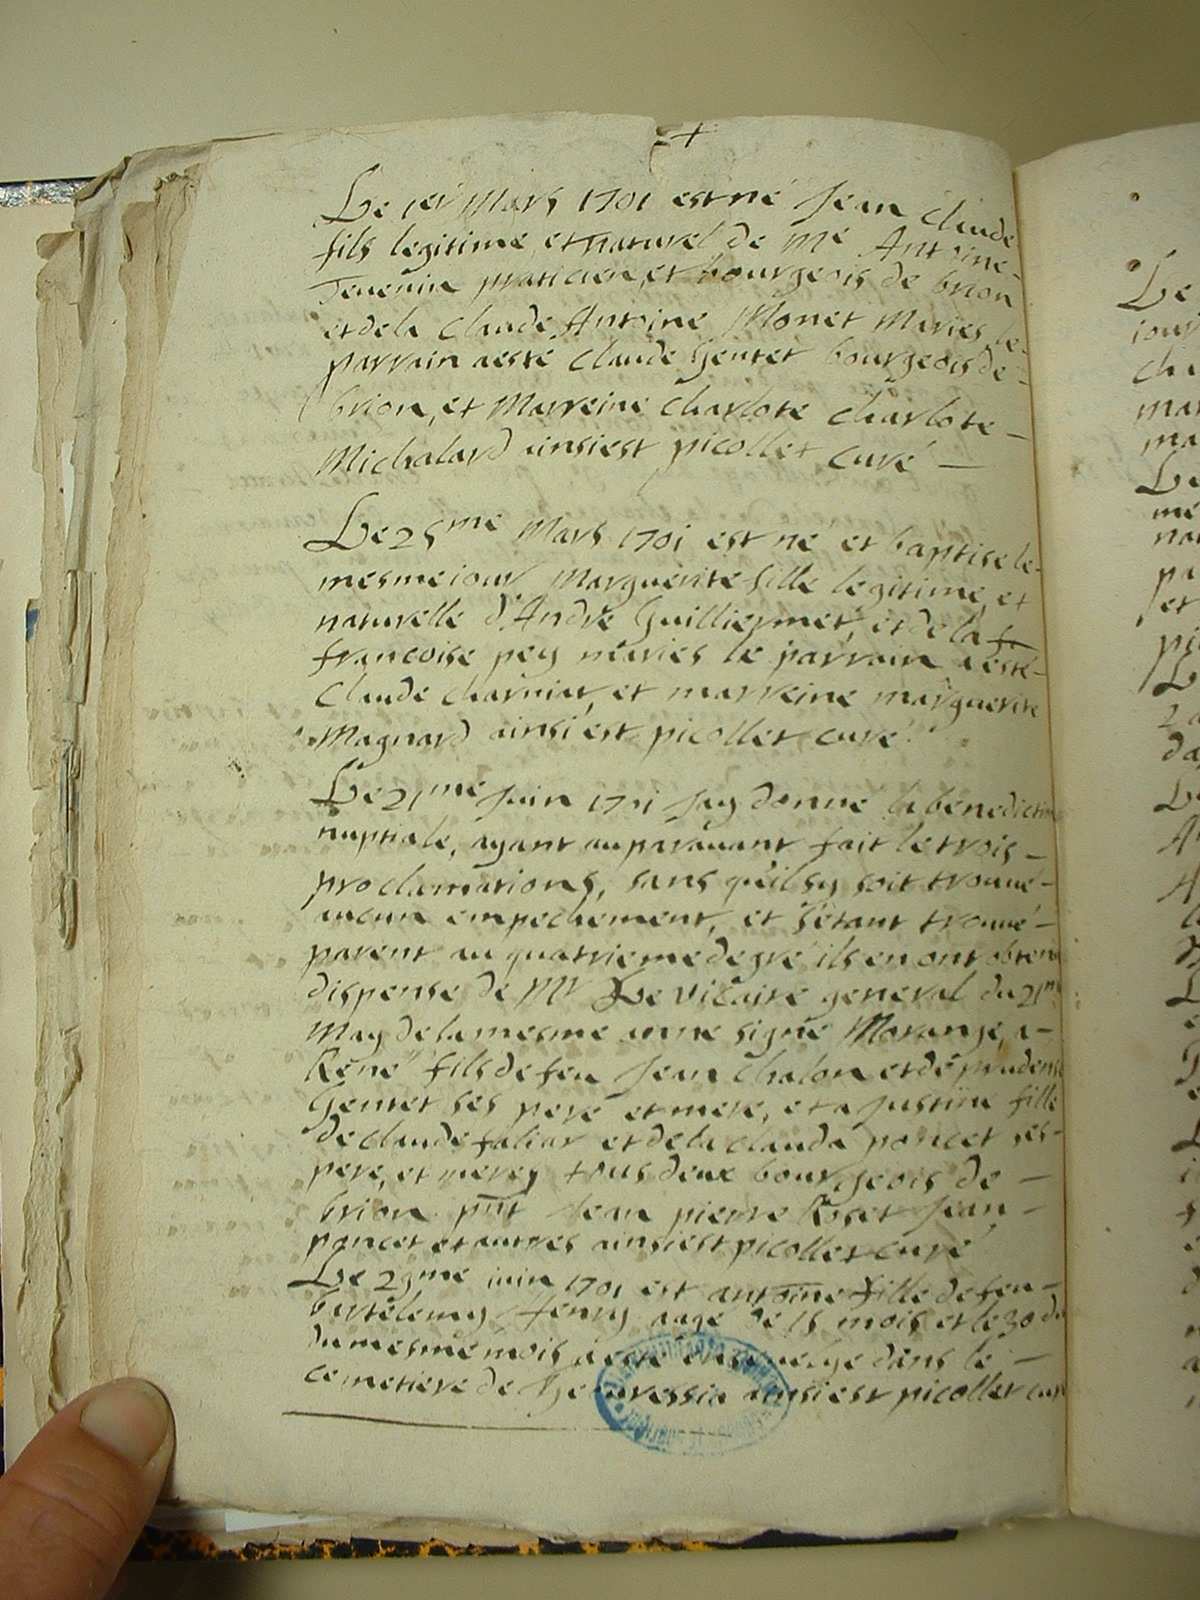 +
Le 1er Mars 1701 est né Jean Claude
fils legitime, et naturel de Me Antoine
Jevenin praticien, et bourgeois de brion
et de la Claude Antoine Monet Mariés, le
parrain a esté Claude Gentet bourgeois de
brion, et Marreine Charlote Charlote
Michalard ainsi est picollet curé
Le 25me Mars 1701 est né et baptise le
mesme iour Marguerite fille legitime, et
naturelle d'André Guilliermet, et de la fr
francoise pey mariés le parrain a esté
Claude Charniat, et marreine marguerite
Magnard ainsi est picollet curé
Le 21me Juin 1701 Jay donné la benediction
nuptiale, ayant auparavant fait le trois
proclamations, sans quil sy soit trouué
aucun empechement, et s'etant trouué
parent au quatrieme degré ils en ont obtenu
dispense de Mr Le vicaire general du 21me
May de la mesme anné signé Morange, a
René fils de feu Jean Chalon et de prudense
Gentet ses pere et mere, et a Justine fille
de Claude faliar et de la Clauda poncet ses
pere, et merey tous deux bourgeois de
brion pnt Jean pierre Roset Jean
poncet et autres ainsi est picollet curé
Le 29me iuin 1701 est antoine fille de feu
bartélemy fenry aagé de 15 mois et le 30 du
du mesme mois a esté dans le
cemetiere de ainsi est picollet curé
Le
iour
mar
ma
Le
me
pa
et